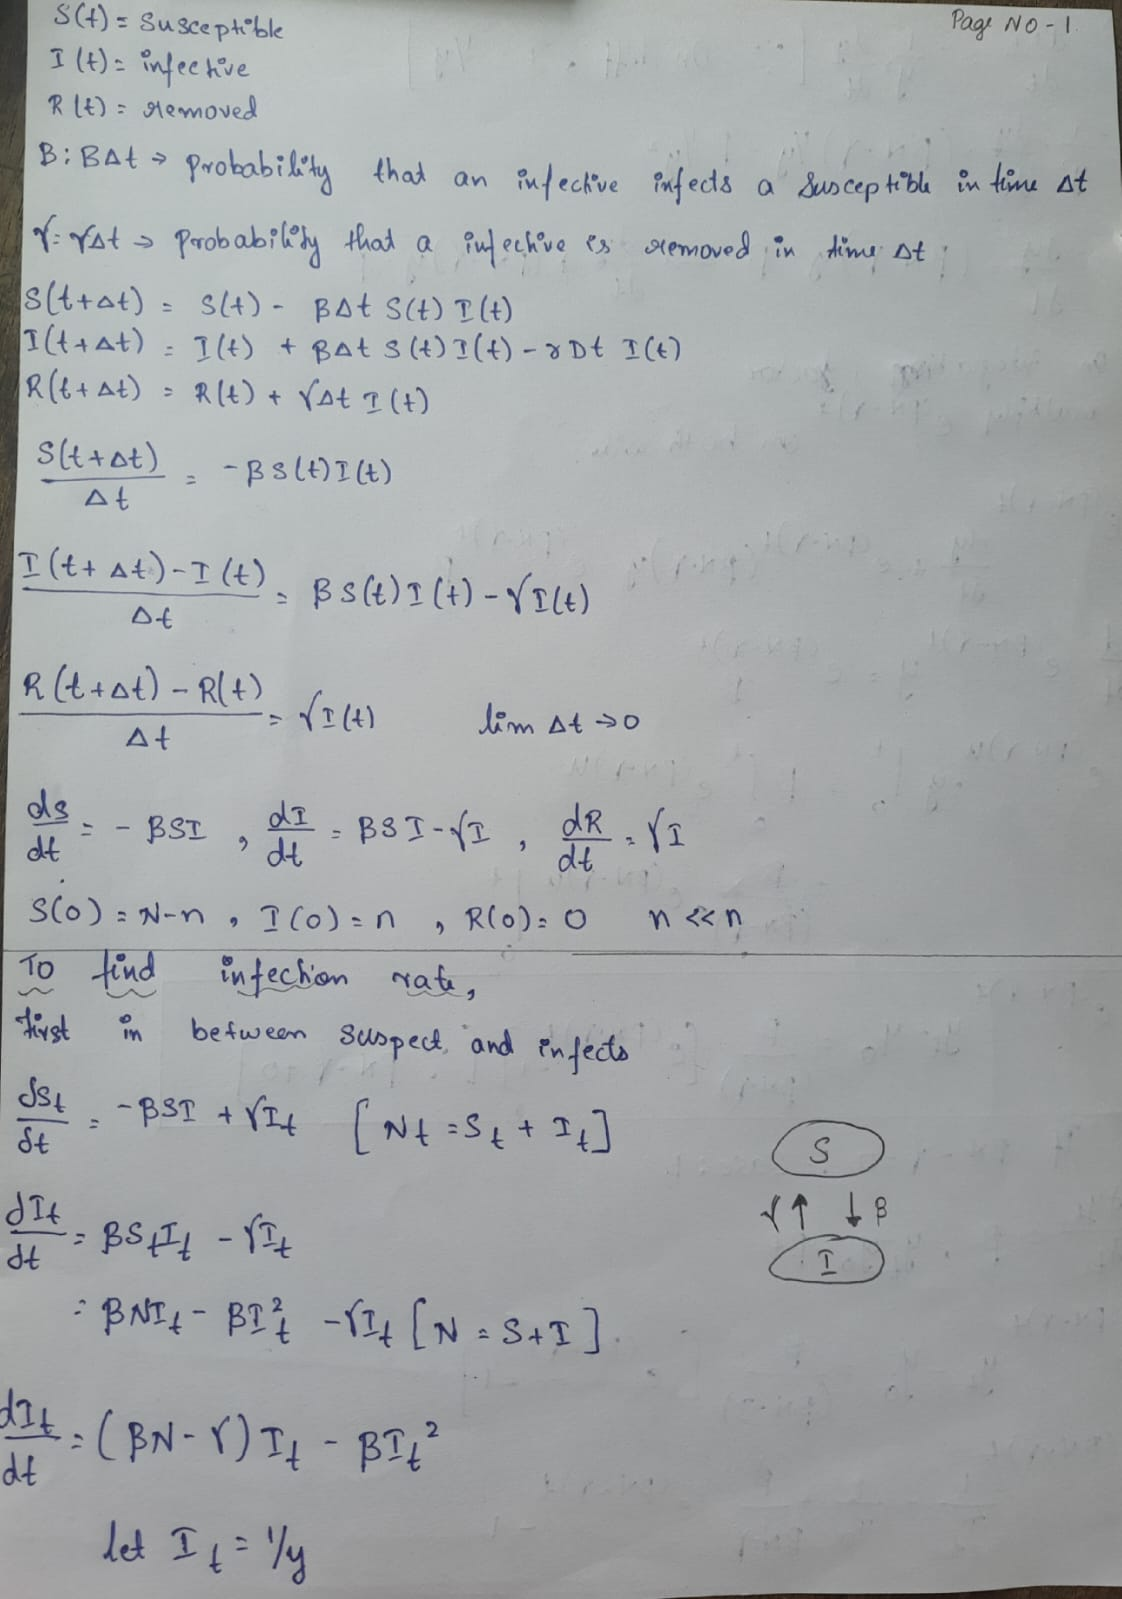 Page NO-1
S(t) = Susceptible
I(t) = infective
R(t) = removed
B: BΔt → probability that an infective infects a Susceptible in time Δt
γ: γΔt → Probability that a infective is removed in time Δt
S(t+Δt) = S(t) - βΔt S(t) I(t)
I(t+Δt) = I(t) + βΔt S(t) I(t) - γDt I(t)
R(t+Δt) = R(t) + γΔt I(t)
S(t+Δt)/Δt = -βS(t)I(t)
I(t+Δt)-I(t)/Δt = βS(t)I(t) - γI(t)
R(t+Δt)-R(t)/Δt = γI(t) lim Δt→0
ds/dt = -βSI, dI/dt = βSI-γI, dR/dt = γI
S(0) = N-n, I(0) = n, R(0) = 0 n<<n
TO find infection rate,
first in between suspect and infects
dSt/dt = -βSI + γIt [Nt = St + It]
S
γ↑ ↓β
I
dIt/dt = βStIt - γIt
= βNIt - βIt² - γIt [N = S+I]
dIt/dt = (βN-γ)It - βIt²
let It = 1/y